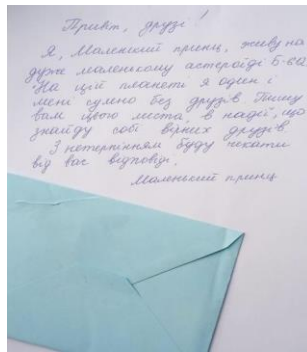 Привіт, друзі!
Я, Маленький принц, живу на
дуже маленькому астероїді Б-612
На цій планеті я один і
мені сумно без друзів Пишу
вам цього листа, в надії, що
знайду собі вірних друзів.
З нетерпінням буду чекати
від вас відповіді.
Маленький принц